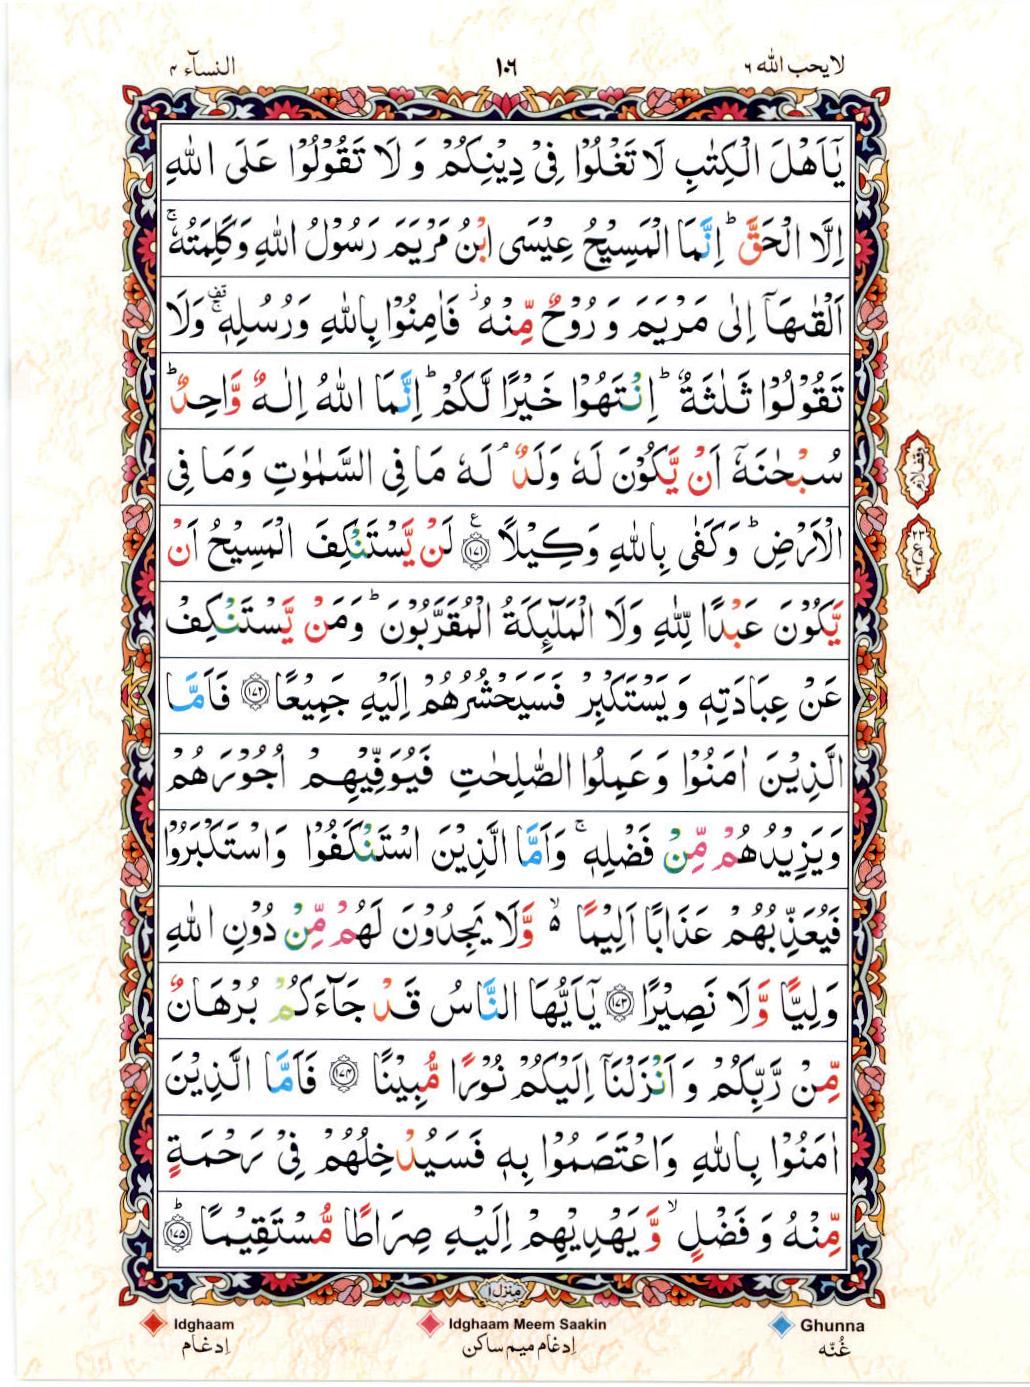 لا یحب الله ٦
١٠٦
النسآء ٤
یٰۤاَهْلَ الْكِتٰبِ لَا تَغْلُوْا فِیْ دِیْنِكُمْ وَ لَا تَقُوْلُوْا عَلَی اللّٰهِ
اِلَّا الْحَقَّ ؕ اِنَّمَا الْمَسِیْحُ عِیْسَی ابْنُ مَرْیَمَ رَسُوْلُ اللّٰهِ وَكَلِمَتُهٗ ۚ
اَلْقٰىهَاۤ اِلٰی مَرْیَمَ وَ رُوْحٌ مِّنْهُ ؗ فَاٰمِنُوْا بِاللّٰهِ وَرُسُلِهٖ ۚ۫ وَلَا
تَقُوْلُوْا ثَلٰثَةٌ ؕ اِنْتَهُوْا خَیْرًا لَّكُمْ ؕ اِنَّمَا اللّٰهُ اِلٰهٌ وَّاحِدٌ ؕ
سُبْحٰنَهٗۤ اَنْ یَّكُوْنَ لَهٗ وَلَدٌ ۘ لَهٗ مَا فِی السَّمٰوٰتِ وَمَا فِی
وقف لازم
الْاَرْضِ ؕ وَكَفٰی بِاللّٰهِ وَكِیْلًا ﴿۱۷۱﴾ ع لَنْ یَّسْتَنْكِفَ الْمَسِیْحُ اَنْ
یَّكُوْنَ عَبْدًا لِّلّٰهِ وَلَا الْمَلٰٓىِٕكَةُ الْمُقَرَّبُوْنَ ؕ وَمَنْ یَّسْتَنْكِفْ
عَنْ عِبَادَتِهٖ وَیَسْتَكْبِرْ فَسَیَحْشُرُهُمْ اِلَیْهِ جَمِیْعًا ﴿۱۷۲﴾ فَاَمَّا
الَّذِیْنَ اٰمَنُوْا وَعَمِلُوا الصّٰلِحٰتِ فَیُوَفِّیْهِمْ اُجُوْرَهُمْ
وَیَزِیْدُهُمْ مِّنْ فَضْلِهٖ ۚ وَاَمَّا الَّذِیْنَ اسْتَنْكَفُوْا وَاسْتَكْبَرُوْا
فَیُعَذِّبُهُمْ عَذَابًا اَلِیْمًا ۙ۬ وَّلَا یَجِدُوْنَ لَهُمْ مِّنْ دُوْنِ اللّٰهِ
وَلِیًّا وَّلَا نَصِیْرًا ﴿۱۷۳﴾ یٰۤاَیُّهَا النَّاسُ قَدْ جَآءَكُمْ بُرْهَانٌ
مِّنْ رَّبِّكُمْ وَ اَنْزَلْنَاۤ اِلَیْكُمْ نُوْرًا مُّبِیْنًا ﴿۱۷۴﴾ فَاَمَّا الَّذِیْنَ
اٰمَنُوْا بِاللّٰهِ وَاعْتَصَمُوْا بِهٖ فَسَیُدْخِلُهُمْ فِیْ رَحْمَةٍ
مِّنْهُ وَ فَضْلٍ ۙ وَّ یَهْدِیْهِمْ اِلَیْهِ صِرَاطًا مُّسْتَقِیْمًا ﴿۱۷۵﴾ؕ
منزل ۱
Idghaam
Idghaam Meem Saakin
Ghunna
اِدغام
اِدغام میم ساکن
غُنّه